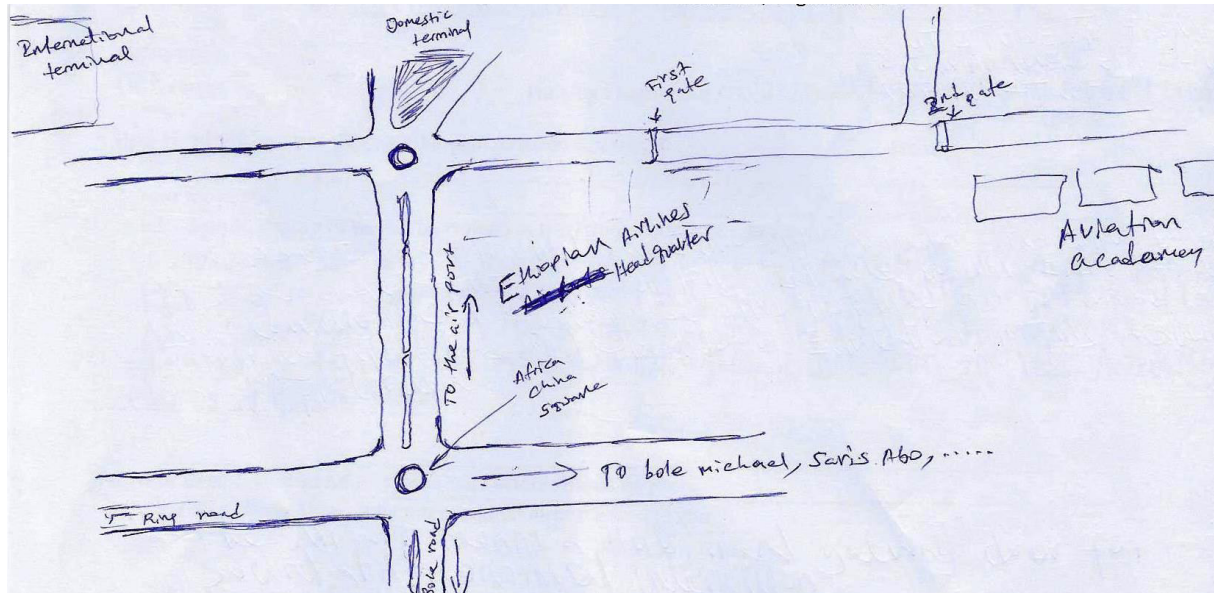 International
terminal
Domestic
terminal
First
gate
2nd gate
Aviation
academey
Ethiopian Airlines
Headquarter
To the air port
Africa
China
Square
To bole michael, Saris Abo, .....
Ring road
Bole road